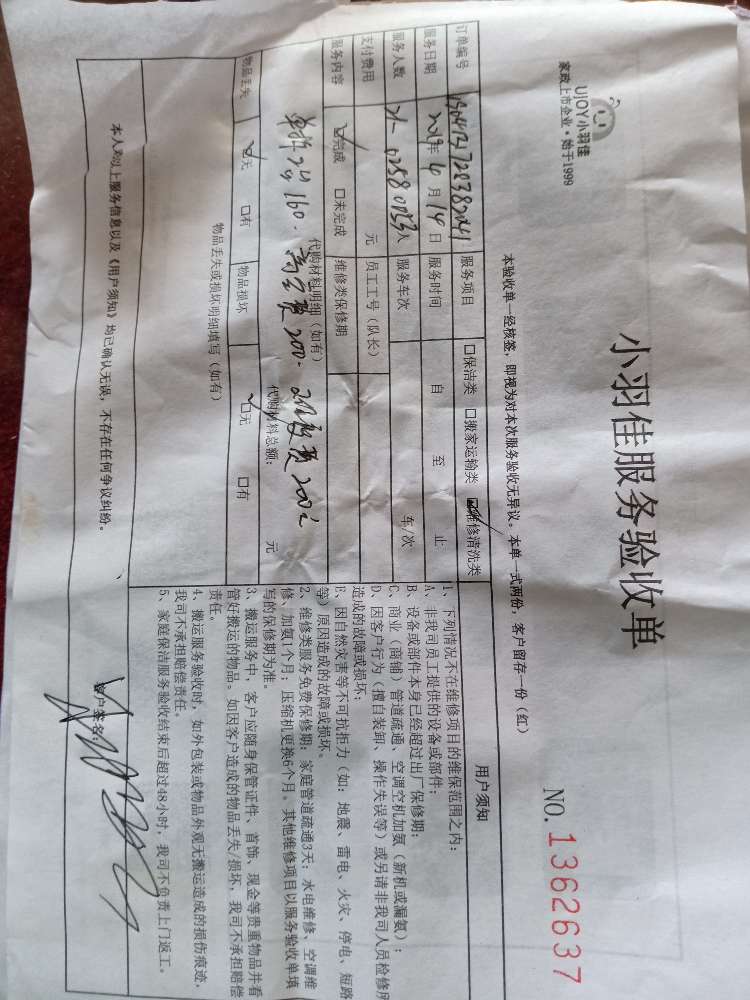 UJOY小羽佳
家政上市企业·始于1999
小羽佳服务验收单
NO.1362637
本验收单一经核签,即视为对本次服务验收无异议。本单一式两份,客户留存一份(红)
订单编号
服务项目 □保洁类 □搬家运输类 ☑维修清洗类
服务日期 2019年6月14日 服务时间 自 至 止
服务人数 人 服务车次 车/次
支付费用 元 员工工号(队长)
服务内容 ☑完成 □未完成 维修类保修期
代购材料明细(如有)
代购材料总额: 元
物品丢失 ☑无 □有 物品损坏 ☑无 □有
物品丢失或损坏明细填写(如有)
用户须知
1、下列情况不在维修项目的维保范围之内:
A、非我司员工提供的设备或部件;
B、设备或部件本身已经超过出厂保修期;
C、商业(商铺)管道疏通、空调空机加氨(新机或漏氨);
D、因客户行为(擅自装卸、操作失误等)或另请非我司人员检修所
造成的故障或损坏;
E、因自然灾害等不可抗拒力(如:地震、雷电、火灾、停电、短路
等)原因造成的故障或损坏。
2、维修类服务免费保修期:家庭管道疏通3天;水电维修、空调维
修、加氨1个月;压缩机更换6个月。其他维修项目以服务验收单填
写的保修期为准。
3、搬运服务中,客户应随身保管证件、首饰、现金等贵重物品并看
管好搬运的物品。如因客户造成的物品丢失/损坏,我司不承担赔偿
责任。
4、搬运服务验收时,如外包装或物品外观无搬运造成的损伤痕迹,
我司不承担赔偿责任。
5、家庭保洁服务验收结束后超过48小时,我司不负责上门返工。
本人对以上服务信息以及《用户须知》均已确认无误,不存在任何争议纠纷。
客户签名: